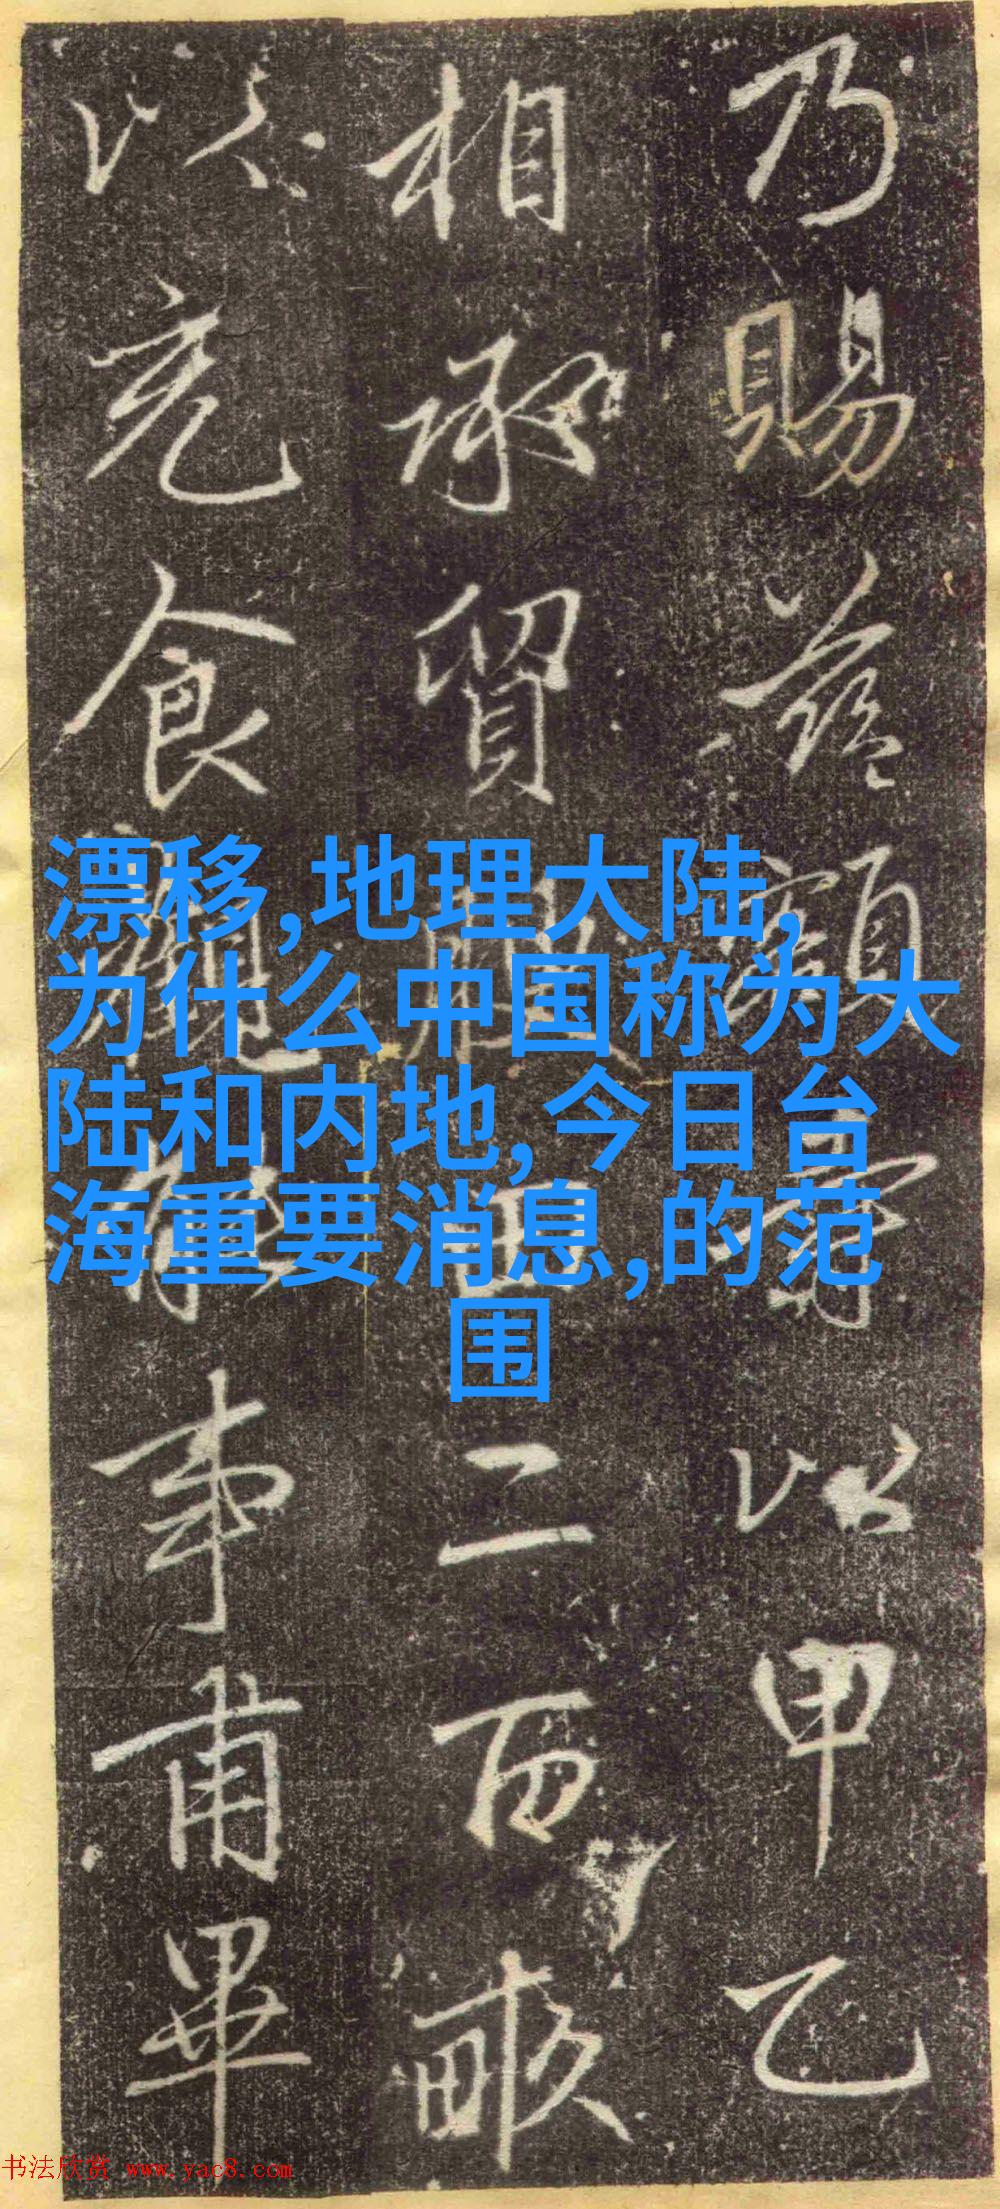 乃賜益額寺以甲乙
相承貿腴田二百畝
以充食觀音事甫畢
漂移,地理大陆,
为什么中国称为大
陆和内地,今日台
海重要消息,的范
围
书法欣赏 www.yac8.com